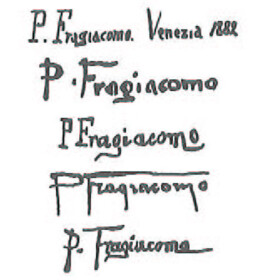 P. Fragiacomo. Venezia 1882
P. Fragiacomo
P Fragiacomo
P Fragiacomo
P. Fragiacomo